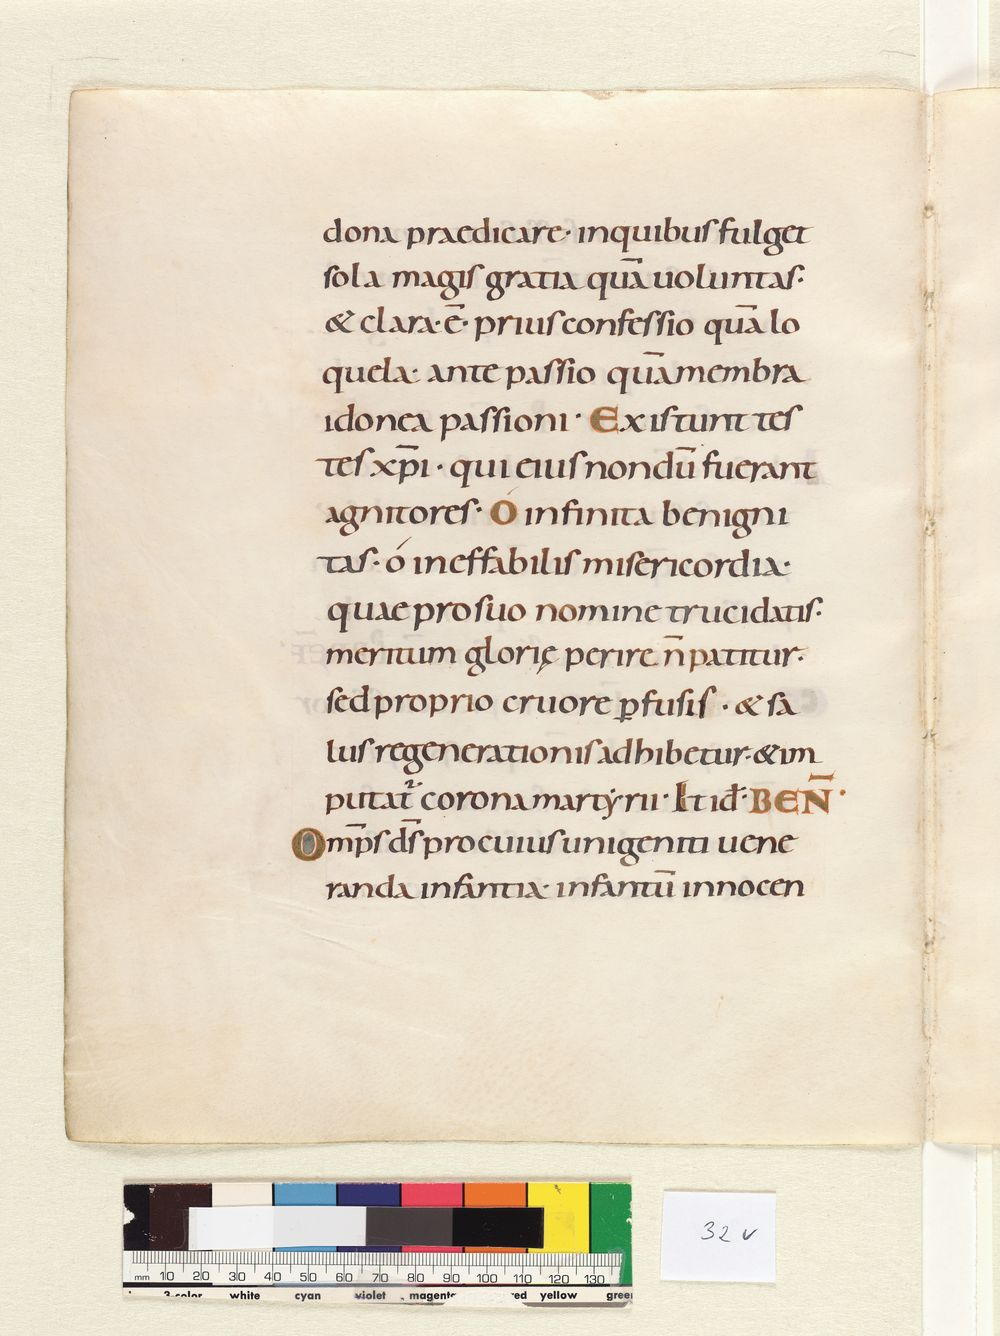 dona praedicare· inquibus fulget
sola magis gratia quā uoluntas·
& clara· ē· prius confessio quā lo
quela· ante passio quā membra
idonea passioni· Existunt tes
tes xp̄i· qui eius nondū fuerant
agnitores· O infinita benigni
tas· ó ineffabilis misericordia·
quae pro suo nomine trucidatis·
meritum glorię perire n̄ patitur·
sed proprio cruore ꝑfusis· & sa
lus regenerationis adhibetur· & im
putat᷑ corona martẏrii· It id̄· BEN̄·
Omp̄s d̄s pro cuius unigeniti uene
randa infantia· infantū innocen
32 v
mm 10 20 30 40 50 60 70 80 90 100 110 120 130
3-color white cyan violet magenta red yellow green